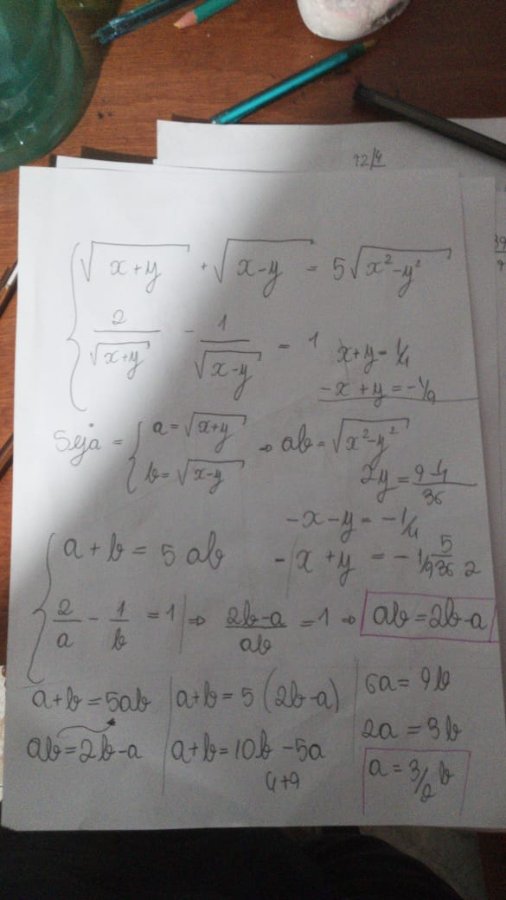 12/4
√(x+y) + √(x-y) = 5√(x²-y²)
2/√(x+y) - 1/√(x-y) = 1
x+y = 1/4
-x + y = -1/9
Seja = { a = √(x+y)
b = √(x-y)
⇒ ab = √(x²-y²)
2y = 9-4/36
-x-y = -1/4
-x + y = -1/9
5/36 2
a + b = 5 ab
2/a - 1/b = 1 ⇒ 2b-a/ab = 1 ⇒ ab = 2b-a
a+b = 5ab
ab = 2b-a
a+b = 5 (2b-a)
a+b = 10b - 5a
4+9
6a = 9b
2a = 3b
a = 3/2 b